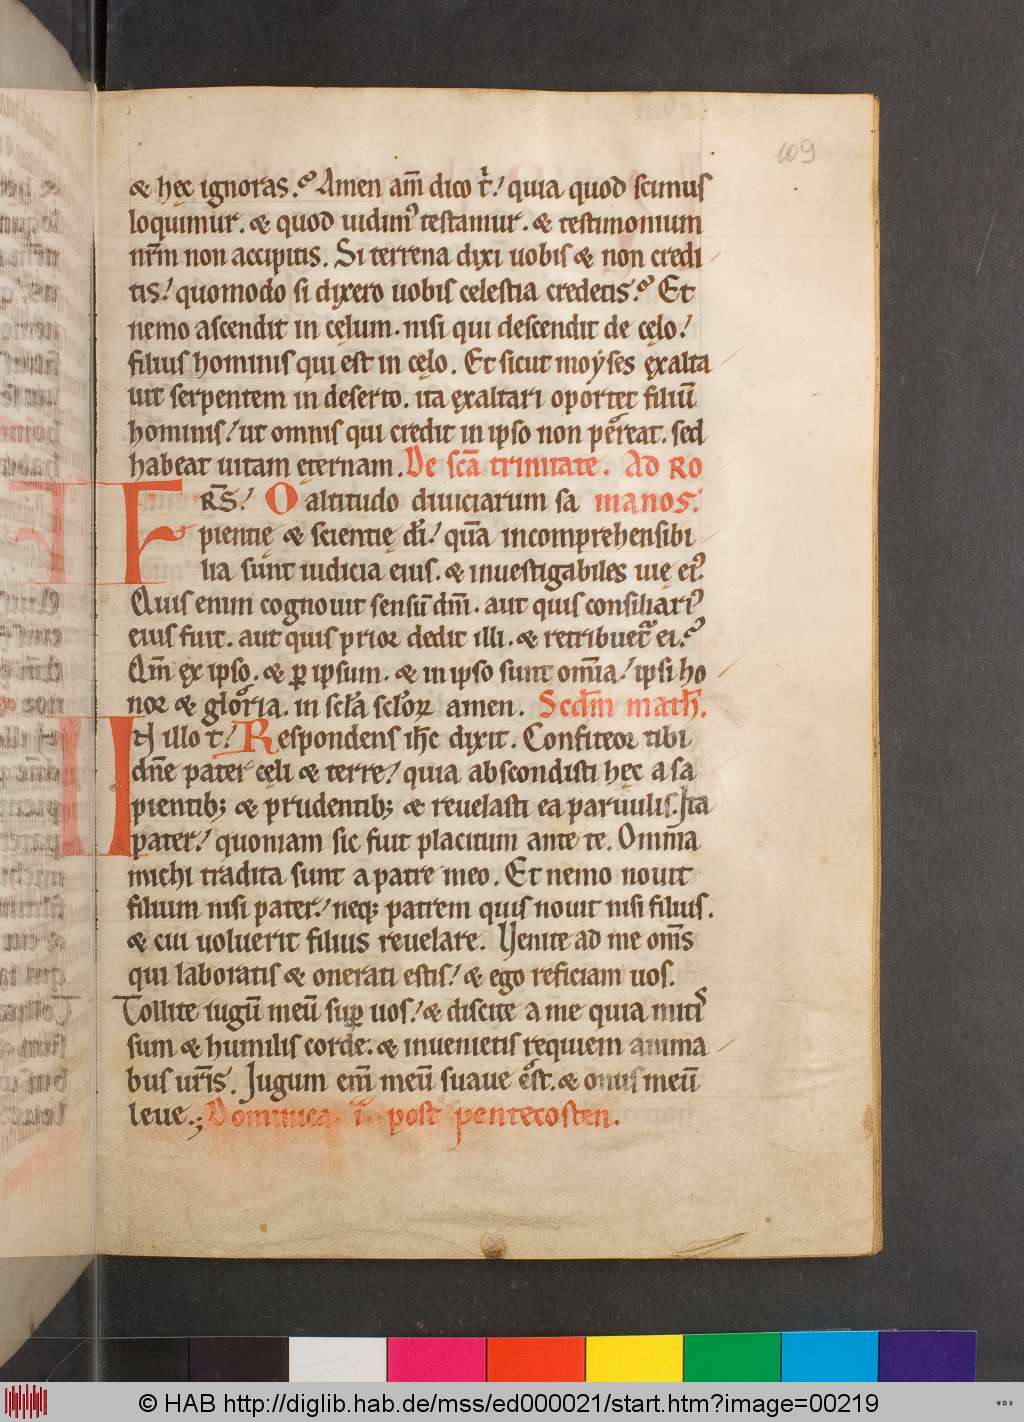 109
& hęc ignoras. Amen am̄ dico t᷑ quia quod scimus
loquimur. & quod uidimꝰ testamur. & testimonium
nr̄m non accipitis. Si terrena dixi uobis & non credi
tis. quomodo si dixero uobis celestia credetis. Et
nemo ascendit in cęlum. nisi qui descendit de cęlo.
filius hominis qui est in cęlo. Et sicut moẏses ęxalta
uit serpentem in deserto. ita ęxaltari oportet filiū
hominis. ut omnis qui credit in ipso non pereat. sed
habeat uitam ęternam. De scā trinitate. Ad Ro
F RS̄. O altitudo diuiciarum sa manos.
pientię & scientię dī. quā incomprehensibi
lia sunt iudicia eius. & inuestigabiles uię eiꝰ.
Quis enim cognouit sensū dn̄i. aut quis consiliariꝰ
eius fuit. aut quis prior dedit illi. & retribuet᷑ ei.
Qm̄ ęx ipso. & ꝑ ipsum. & in ipso sunt om̄ia. ipsi ho
nor & gloria. in scl̄a scl̄oꝝ amen. Scdm̄ math̄.
IN illo t̄. Respondens ih̄c dixit. Confiteor tibi
dn̄e pater cęli & terre. quia abscondisti hęc a sa
pientibꝫ & prudentibꝫ & reuelasti ea paruulis. Ita
pater. quoniam sic fuit placitum ante te. Omn̄ia
michi tradita sunt a patre meo. Et nemo nouit
filium nisi pater. neqꝫ patrem quis nouit nisi filius.
& cui uoluerit filius reuelare. Uenite ad me om̄s
qui laboratis & onerati estis. & ego reficiam uos.
Tollite iugū meū suꝑ uos. & discite a me quia mitis
sum & humilis corde. & inuenietis requiem anima
bus ur̄is. Jugum em̄ meū suaue est. & onus meū
leue.; Dominica .i. post pentecosten.
© HAB http://diglib.hab.de/mss/ed000021/start.htm?image=00219